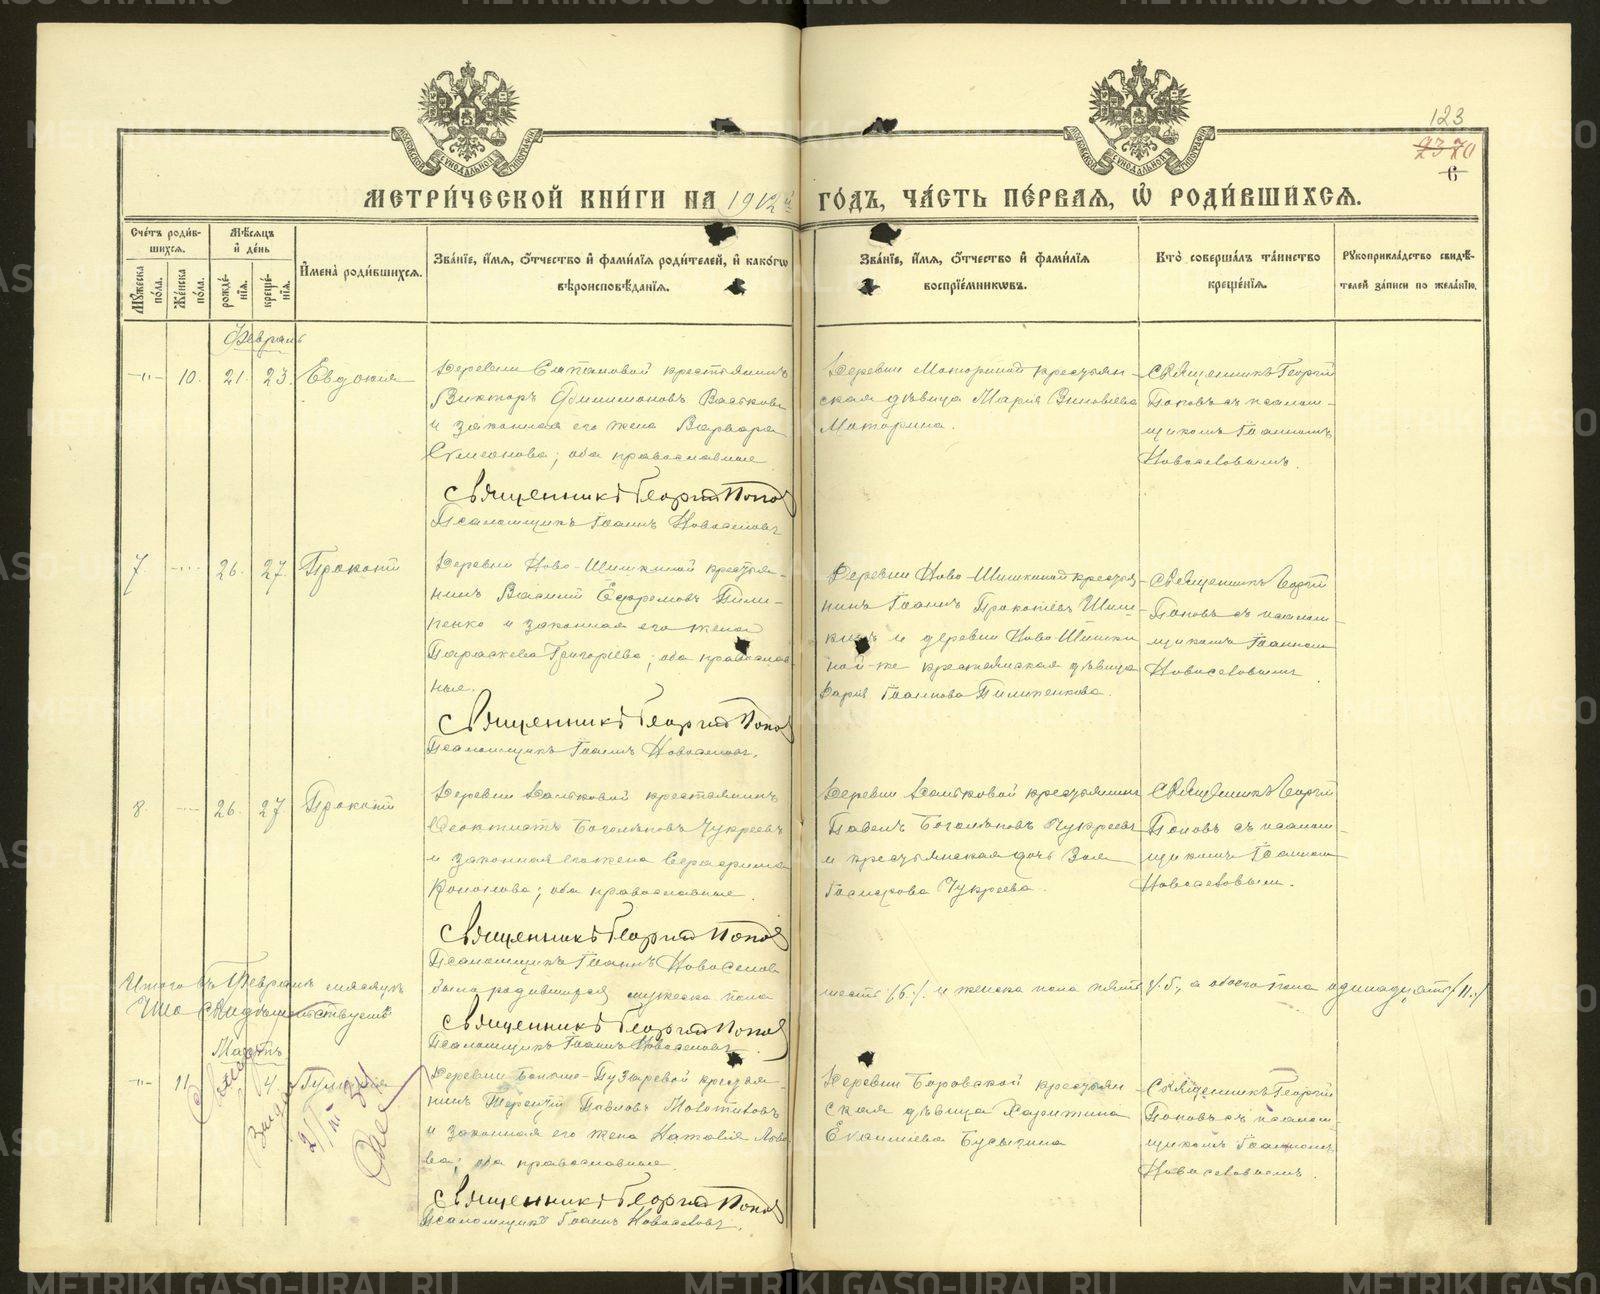 123
6
МЕТРИ́ЧЕСКОЙ КНИ́ГИ НА 1912й ГО́ДЪ, ЧА́СТЬ ПЕ́РВАЯ, Ѡ РОДИ́ВШИХСѦ.
Сче́тъ роди́в-
шихсѧ.
Мꙋжеска
по́ла.
Же́нска
по́ла.
Мѣ́сяцъ
и҆ де́нь
рожде́-
нїѧ.
креще́-
нїѧ.
И҆мена̀ роди́вшихсѧ.
Зва́нїе, и҆́мѧ, ѻ҆́тчество и҆ фами́лїѧ роди́телей, и҆ како́гѡ
вѣроисповѣ́данїѧ.
Зва́нїе, и҆́мѧ, ѻ҆́тчество и҆ фами́лїѧ
воспрїе́мникѡвъ.
Кто̀ соверша́лъ та́инство
креще́нїѧ.
Рꙋкоприкла́дство свидѣ́-
телей за́писи по жела́нїю.
Февраль
10. 21. 23. Евдокія
Деревни крестьянинъ
Викторъ Филимоновъ Васьковъ
и законная его жена Варвара
Симеонова; оба православные.
Священникъ Георгій Поповъ
Псаломщикъ Іоаннъ Новоселовъ
Деревни Моториной крестьян-
ская дѣвица Марія Зиновіева
Моторина.
Священникъ Георгій
Поповъ съ псалом-
щикомъ Іоанномъ
Новоселовымъ.
7. 26. 27. Прокопій
Деревни Ново-Шишкиной крестья-
нинъ Василій Ефремовъ Пили-
пенко и законная его жена
Параскева Григоріева; оба православ-
ные.
Священникъ Георгій Поповъ
Псаломщикъ Іоаннъ Новоселовъ.
Деревни Ново-Шишкиной крестья-
нинъ Іоаннъ Прокопіевъ Шиш-
кинъ и деревни Ново-Шишки-
ной-же крестьянская дѣвица
Дарія Іоаннова Пилипенкова.
Священникъ Георгій
Поповъ съ псалом-
щикомъ Іоанномъ
Новоселовымъ.
8. 26. 27. Прокопій
Деревни Васьковой крестьянинъ
Ѳеоктистъ Боголѣповъ Чукреевъ
и законная его жена Серафима
Кононова; оба православные.
Священникъ Георгій Поповъ
Псаломщикъ Іоаннъ Новоселовъ
Деревни Васьковой крестьянинъ
Павелъ Боголѣповъ Чукреевъ
и крестьянская дочь Зоя
Чукреева.
Священникъ Георгій
Поповъ съ псалом-
щикомъ Іоанномъ
Новоселовымъ.
Итого въ Февралѣ мѣсяцѣ было родившихся мужеска пола шесть /6./ и женска пола пять /5./, а обоего пола одинадцать /11./
Что свидѣтельствуемъ:
Священникъ Георгій Поповъ
Псаломщикъ Іоаннъ Новоселовъ.
Мартъ
11. 4.
Деревни Больше-Пузыревой крестья-
нинъ Терентій Павловъ Молотиловъ
и законная его жена Наталія
ва; оба православные.
Священникъ Георгій Поповъ
Псаломщикъ Іоаннъ Новоселовъ.
Деревни Боровской крестьян-
ская дѣвица Харитина
Бусыгина
Священникъ Георгій
Поповъ съ псалом-
щикомъ Іоанномъ
Новоселовымъ.
METRIKI.GASO-URAL.RU